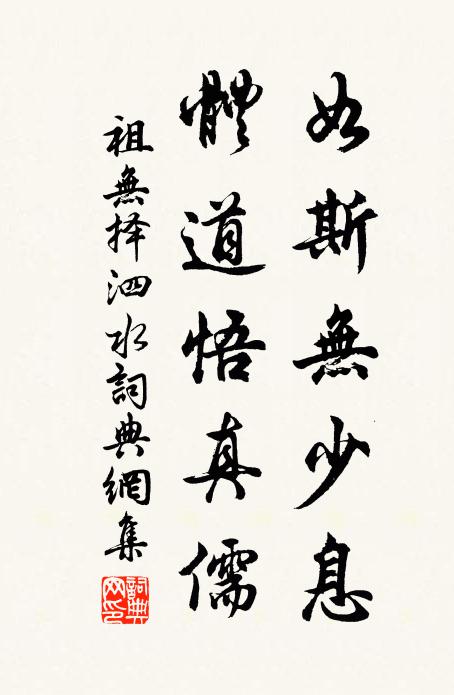 如斯無少息
體道悟真儒
祖無择泗水詞典網集
詞典网印